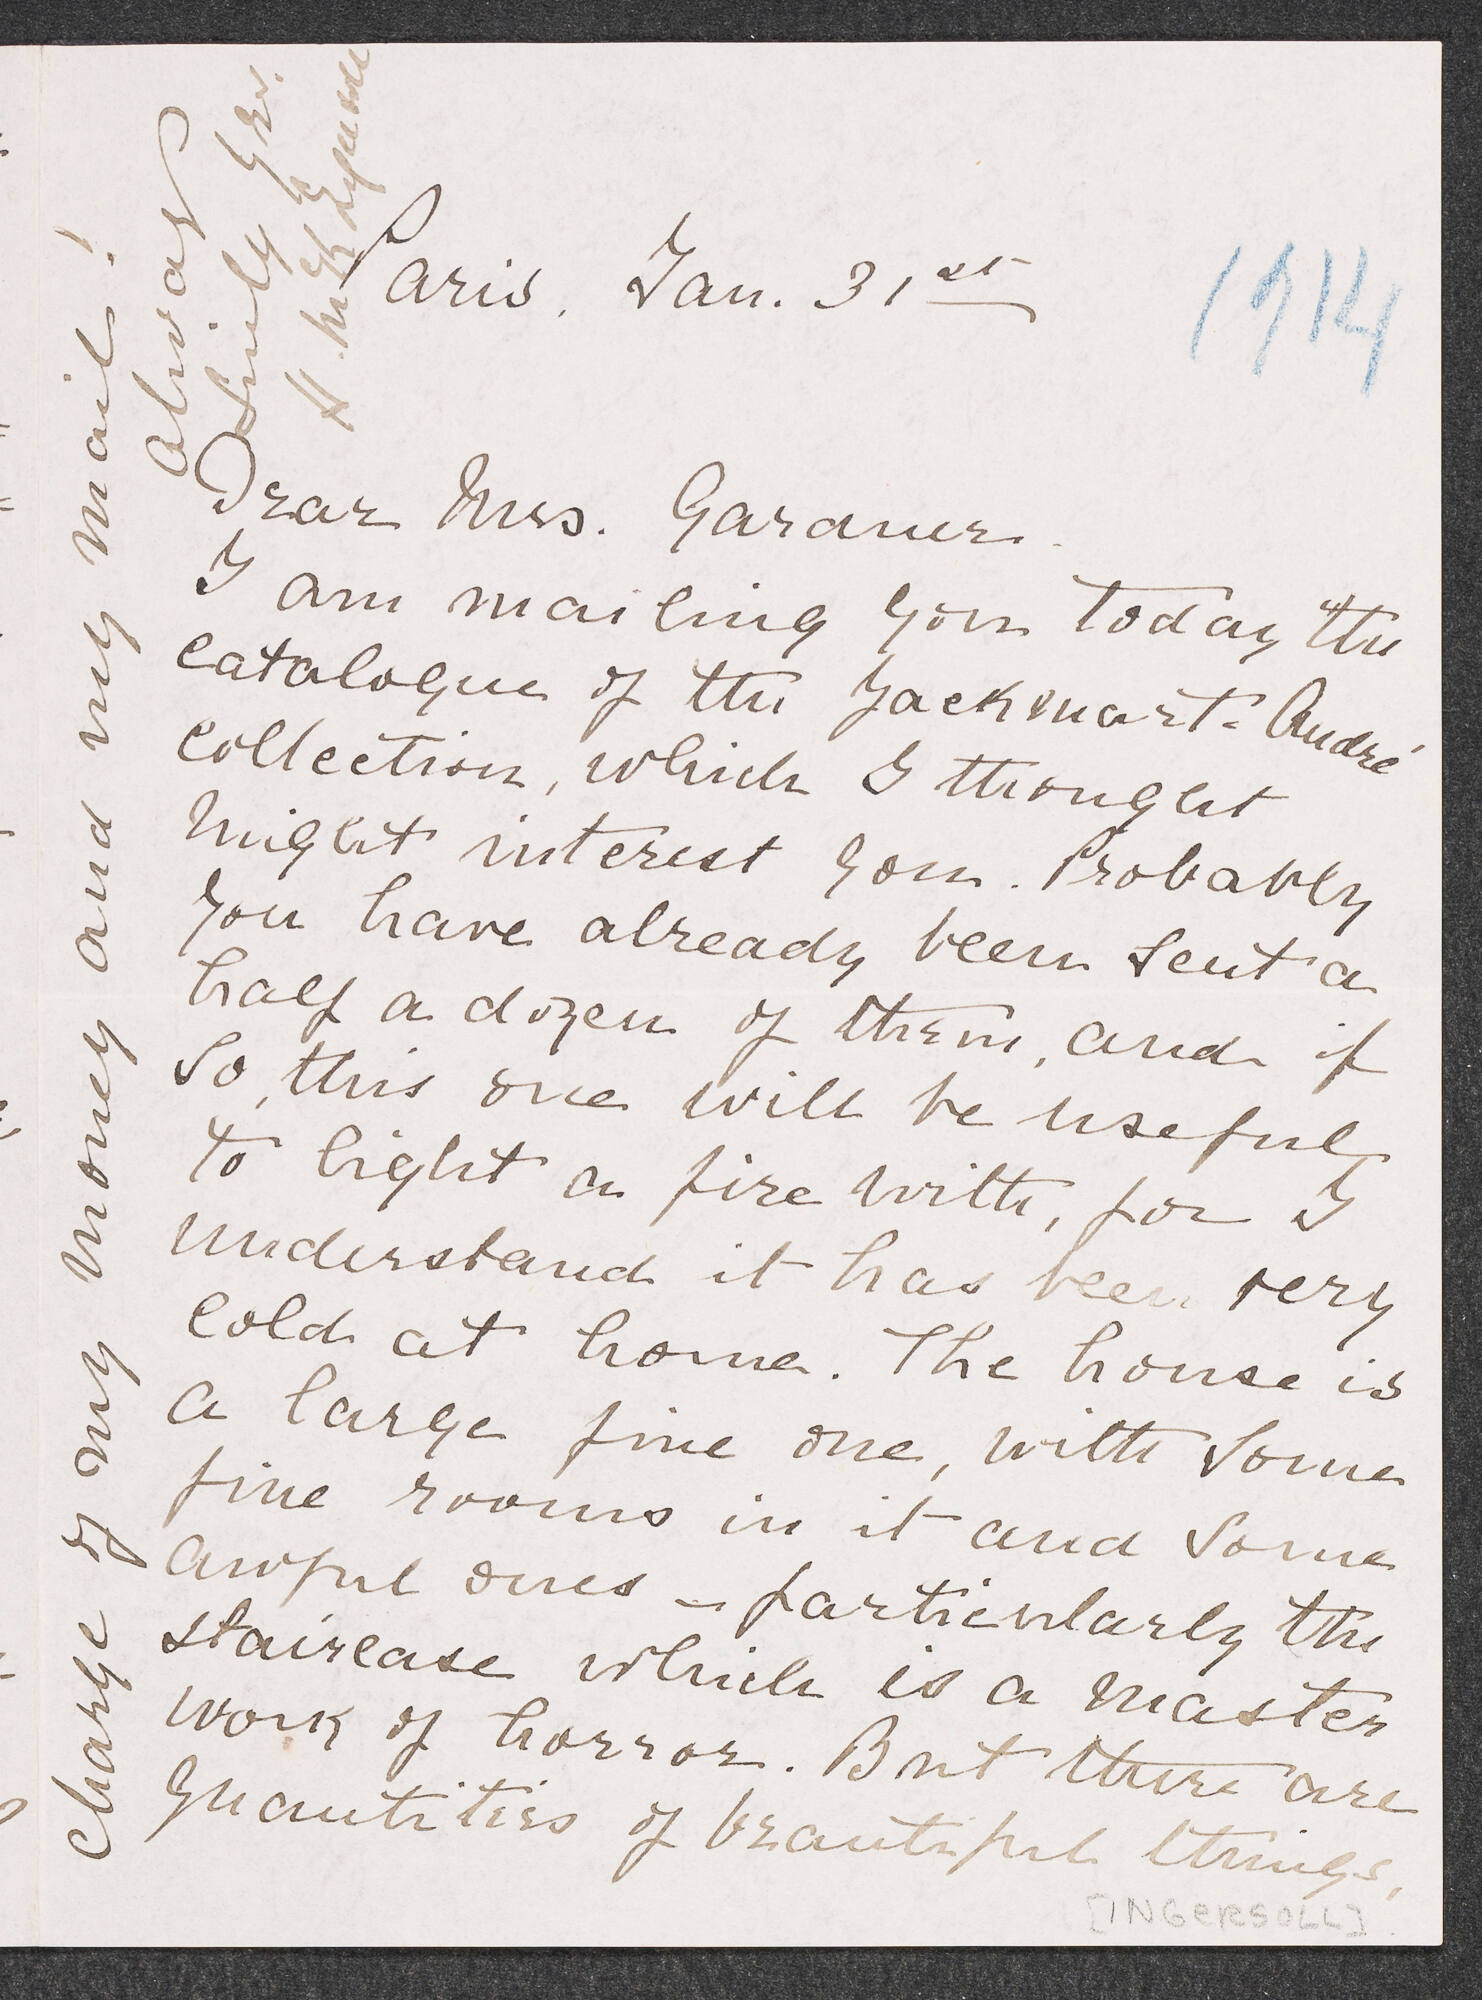 Paris, Jan. 31st
1914
Dear Mrs. Gardner.
I am mailing you today the
catalogue of the Jackmart-André
collection, which I thought
might interest you. Probably
you have already been sent a
half a dozen of them, and if
so, this one will be useful
to light a fire with, for I
understand it has been very
cold at home. The house is
a large fine one, with some
fine rooms in it and some
awful ones – particularly the
staircase which is a master
work of horror. But there are
quantities of beautiful things,
[INGERSOLL]
charge of my money and my mail!
always
yrs.
H.